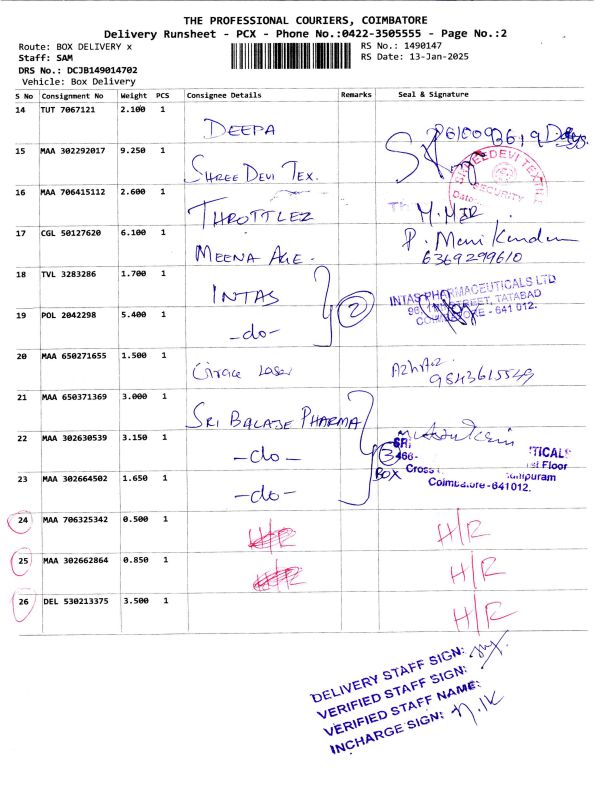 THE PROFESSIONAL COURIERS, COIMBATORE
Delivery Runsheet - PCX - Phone No.:0422-3505555 - Page No.:2
Route: BOX DELIVERY x
RS No.: 1490147
Staff: SAM
RS Date: 13-Jan-2025
DRS No.: DCJB149014702
Vehicle: Box Delivery
S No Consignment No Weight PCS Consignee Details Remarks Seal & Signature
14 TUT 7067121 2.100 1 DEEPA
15 MAA 302292017 9.250 1 SHREE DEVI TEX. SHREEDEVI TEXTILE SECURITY Date
16 MAA 706415112 2.600 1 THROTTLEZ
17 CGL 50127620 6.100 1 MEENA AGE. P. Mani Kandan
6369299610
18 TVL 3283286 1.700 1 INTAS 2 INTAS PHARMACEUTICALS LTD
STREET, TATABAD
19 POL 2042298 5.400 1 -do- COIMBATORE - 641 012.
20 MAA 650271655 1.500 1 Laser
9843615549
21 MAA 650371369 3.000 1 SRI BALAJE PHARMA
22 MAA 302630539 3.150 1 -do- 3 SRI TICALS
466- Floor
BOX Cross
23 MAA 302664502 1.650 1 -do- Coimbatore - 641 012.
24 MAA 706325342 0.500 1 H/R H/R
25 MAA 302662864 0.850 1 H/R H/R
26 DEL 530213375 3.500 1 H/R
DELIVERY STAFF SIGN:
VERIFIED STAFF SIGN:
VERIFIED STAFF NAME:
INCHARGE SIGN: